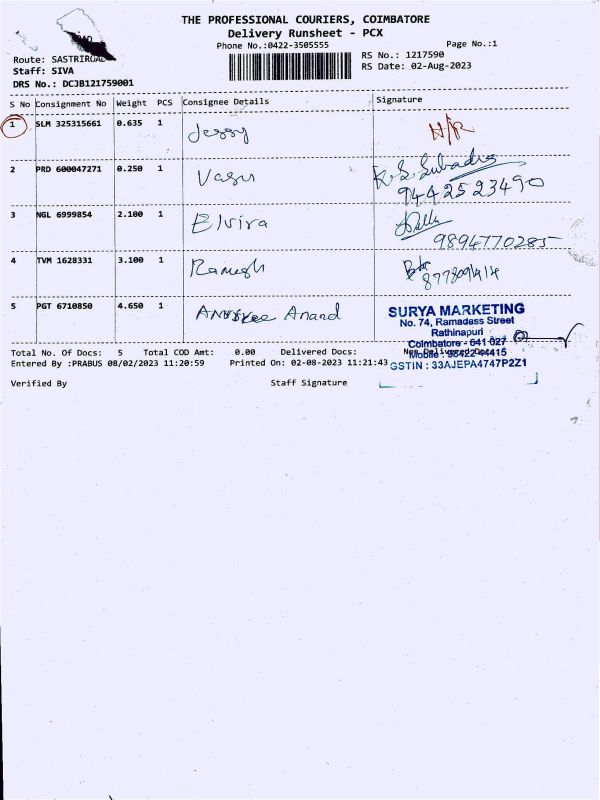 THE PROFESSIONAL COURIERS, COIMBATORE
Delivery Runsheet - PCX
Phone No.:0422-3505555
Page No.:1
Route:
Staff: SIVA
DRS No.: DCJB121759001
RS No.: 1217590
RS Date: 02-Aug-2023
S No Consignment No Weight PCS Consignee Details Signature
1 SLM 325315661 0.635 1 Jessy N/R
2 PRD 600047271 0.250 1 Vasu K.S. Subadra
9442523490
3 NGL 6999854 2.100 1 Elvira
9894770285
4 TVM 1628331 3.100 1 Ramesh
5 PGT 6710850 4.650 1 Anand
SURYA MARKETING
No. 74, Ramadass Street
Rathinapuri
Coimbatore - 641 027
Mobile : 98422 44415
GSTIN : 33AJEPA4747P2Z1
Total No. Of Docs: 5 Total COD Amt: 0.00 Delivered Docs:
Entered By :PRABUS 08/02/2023 11:20:59 Printed On: 02-08-2023 11:21:43
Verified By Staff Signature